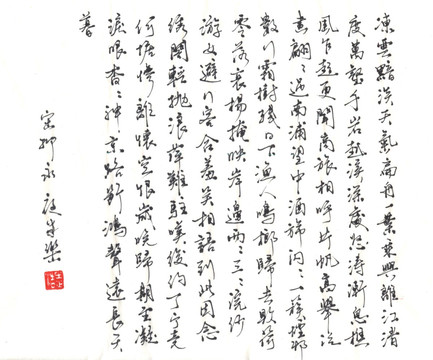 凍雲黯淡天氣扁舟一葉乘興離江渚
度萬壑千岩越溪深處怒濤漸息樵
風乍起更聞商旅相呼片帆高舉泛
畫翩〻過南浦望中酒旆閃〻一簇煙邨
數行霜樹殘日下漁人鳴榔歸去敗荷
零落衰楊掩映岸邊兩〻三〻浣紗
游女避行客含羞笑相語到此因念
繡閣輕拋浪萍難駐嘆後約丁寧竟
何據慘離懷空恨歲晚歸期阻凝
淚眼杳〻神京路斷鴻聲遠長天
暮
宋柳永夜半樂